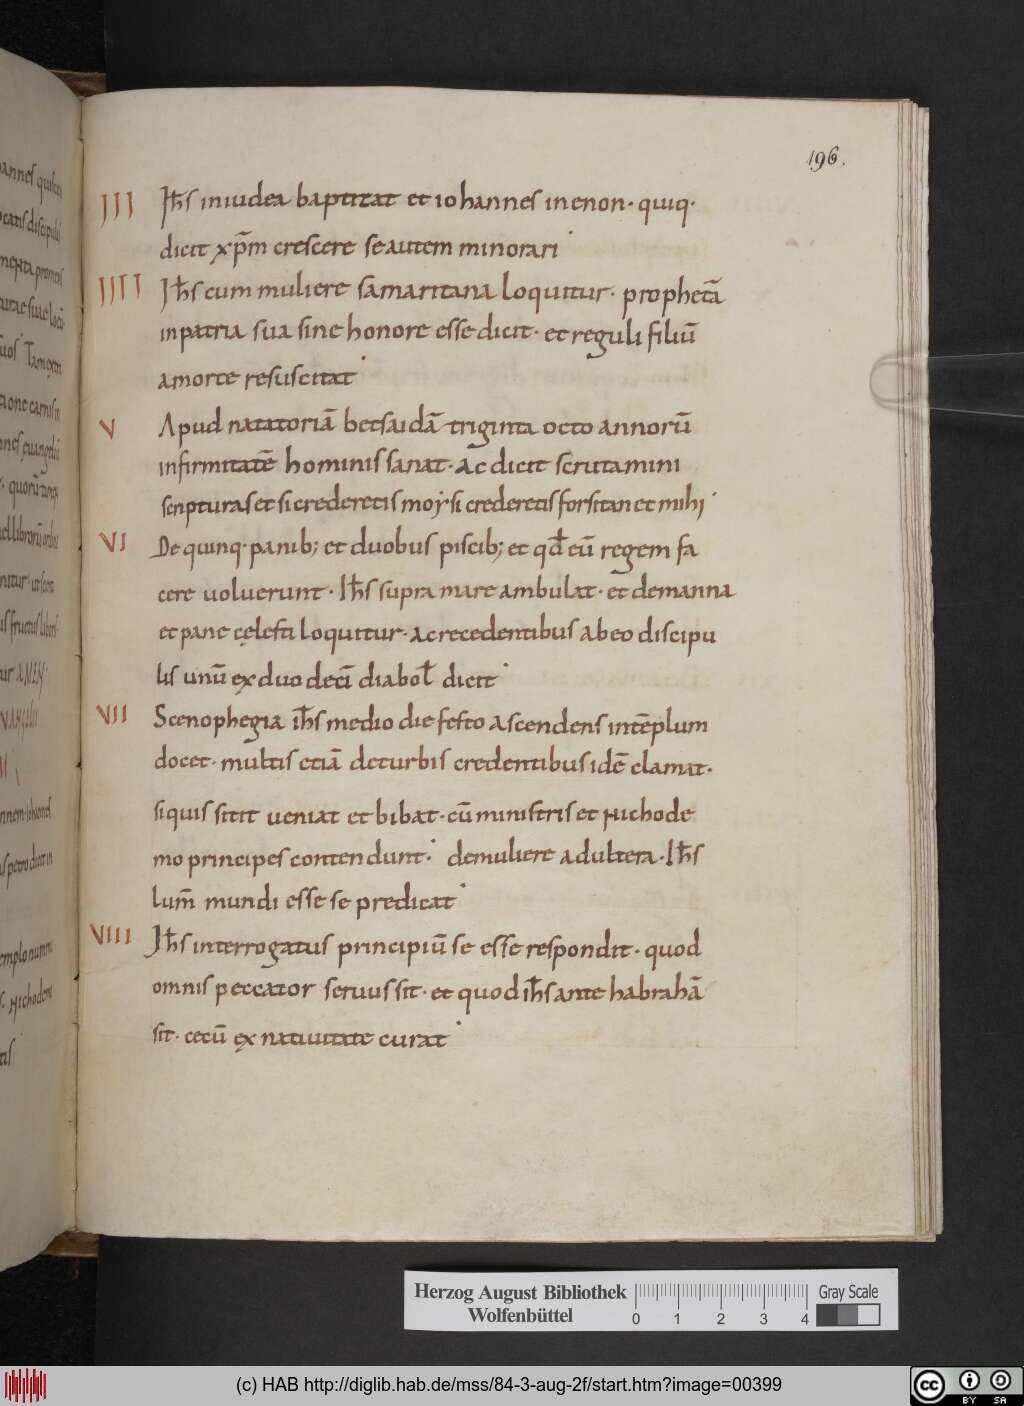 196.
III Ih̅s iniudea baptizat et iohannes inenon· quiq·
dicit xp̅m crescere seautem minorari
IIII Ih̅s cum muliere samaritana loquitur· prophetā
inpatria sua sine honore esse dicit· et reguli filiū
amorte resuscitat
V Apud natatoriā betsaidā triginta octo annorū
infirmitatē hominis sanat· Ac dicit scrutamini
scripturas et si crederetis moysi crederetis forsitan et mihi
VI De quinq· panib; et duobus piscib; et qd̅ eū regem fa
cere voluerunt· Ih̅s supra mare ambulat· et demanna
et pane cęlesti loquitur· ac recedentibus abeo discipu
lis unū ex duodecī diabol̅ dicit
VII Scenophegia ih̅s medio die festo ascendens intēplum
docet· multis etiā deturbis credentibus idē clamat·
siquis sitit veniat et bibat· cū ministris et Nichode
mo principes contendunt· demuliere adultera· Ih̅s
lum̅ mundi esse se predicat
VIII Ih̅s interrogatus principiū se esse respondit· quod
omnis peccator servus sit· et quod ih̅s ante habrahā
sit· cecū ex nativitate curat
Herzog August Bibliothek
Wolfenbüttel
0 1 2 3 4
Gray Scale
(c) HAB http://diglib.hab.de/mss/84-3-aug-2f/start.htm?image=00399
cc BY SA